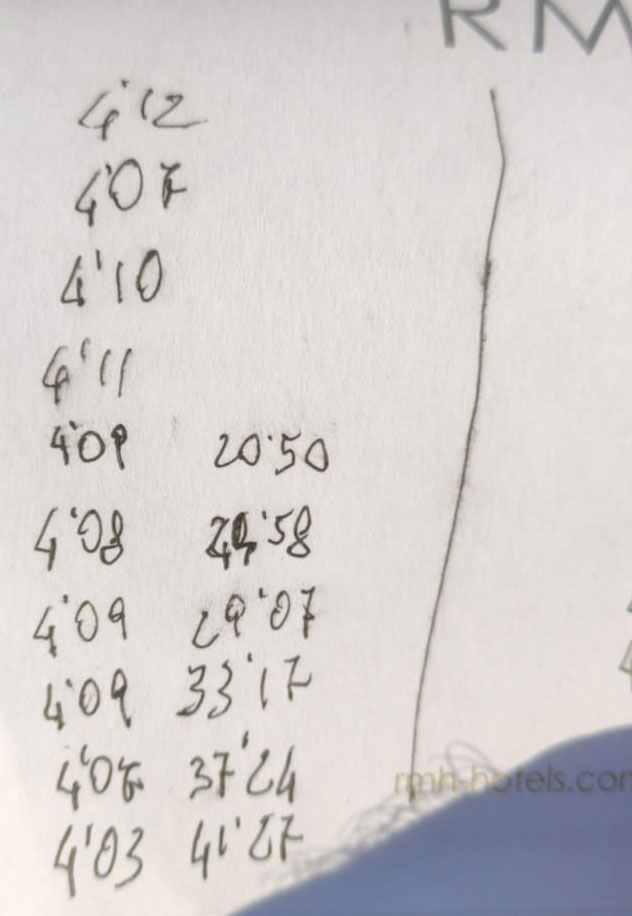 RM
4'12
4'07
4'10
4'11
4'09 20'50
4'08 24'58
4'09 29'07
4'09 33'17
4'07 37'24
4'03 41'27
rmh-hotels.com